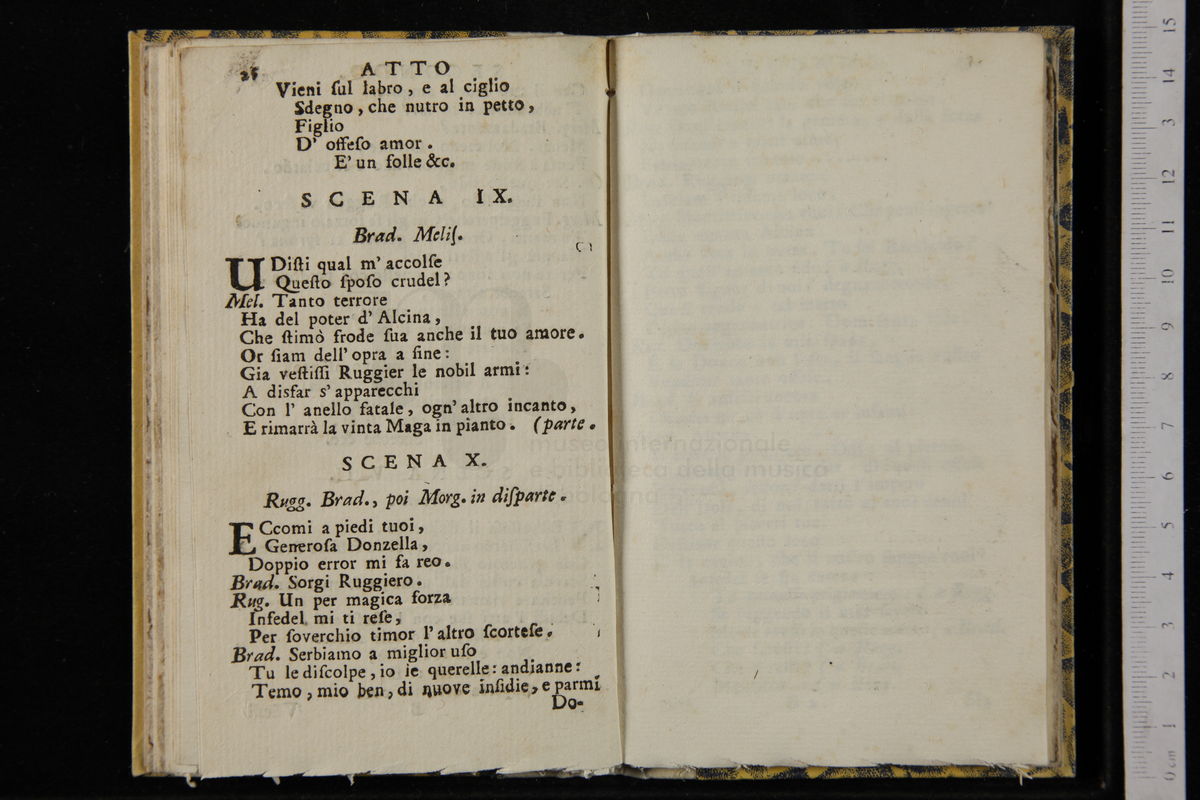 26
ATTO
Vieni ſul labro, e al ciglio
Sdegno, che nutro in petto,
Figlio
D' offeſo amor.
E' un folle &c.
SCENA IX.
Brad. Meliſ.
UDiſti qual m' accolſe
Queſto ſpoſo crudel?
Mel. Tanto terrore
Ha del poter d' Alcina,
Che ſtimò frode ſua anche il tuo amore.
Or ſiam dell' opra a fine:
Gia veſtiſſi Ruggier le nobil armi:
A disfar s' apparecchi
Con l' anello fatale, ogn' altro incanto,
E rimarrà la vinta Maga in pianto. (parte.
SCENA X.
Rugg. Brad., poi Morg. in diſparte.
ECcomi a piedi tuoi,
Generoſa Donzella,
Doppio error mi fa reo.
Brad. Sorgi Ruggiero.
Rug. Un per magica forza
Infedel mi ti reſe,
Per ſoverchio timor l' altro ſcorteſe.
Brad. Serbiamo a miglior uſo
Tu le diſcolpe, io le querelle: andianne:
Temo, mio ben, di nuove inſidie, e parmi
Do-
museo internazionale
e biblioteca della musica
di bologna
0 cm 1 2 3 4 5 6 7 8 9 10 11 12 13 14 15